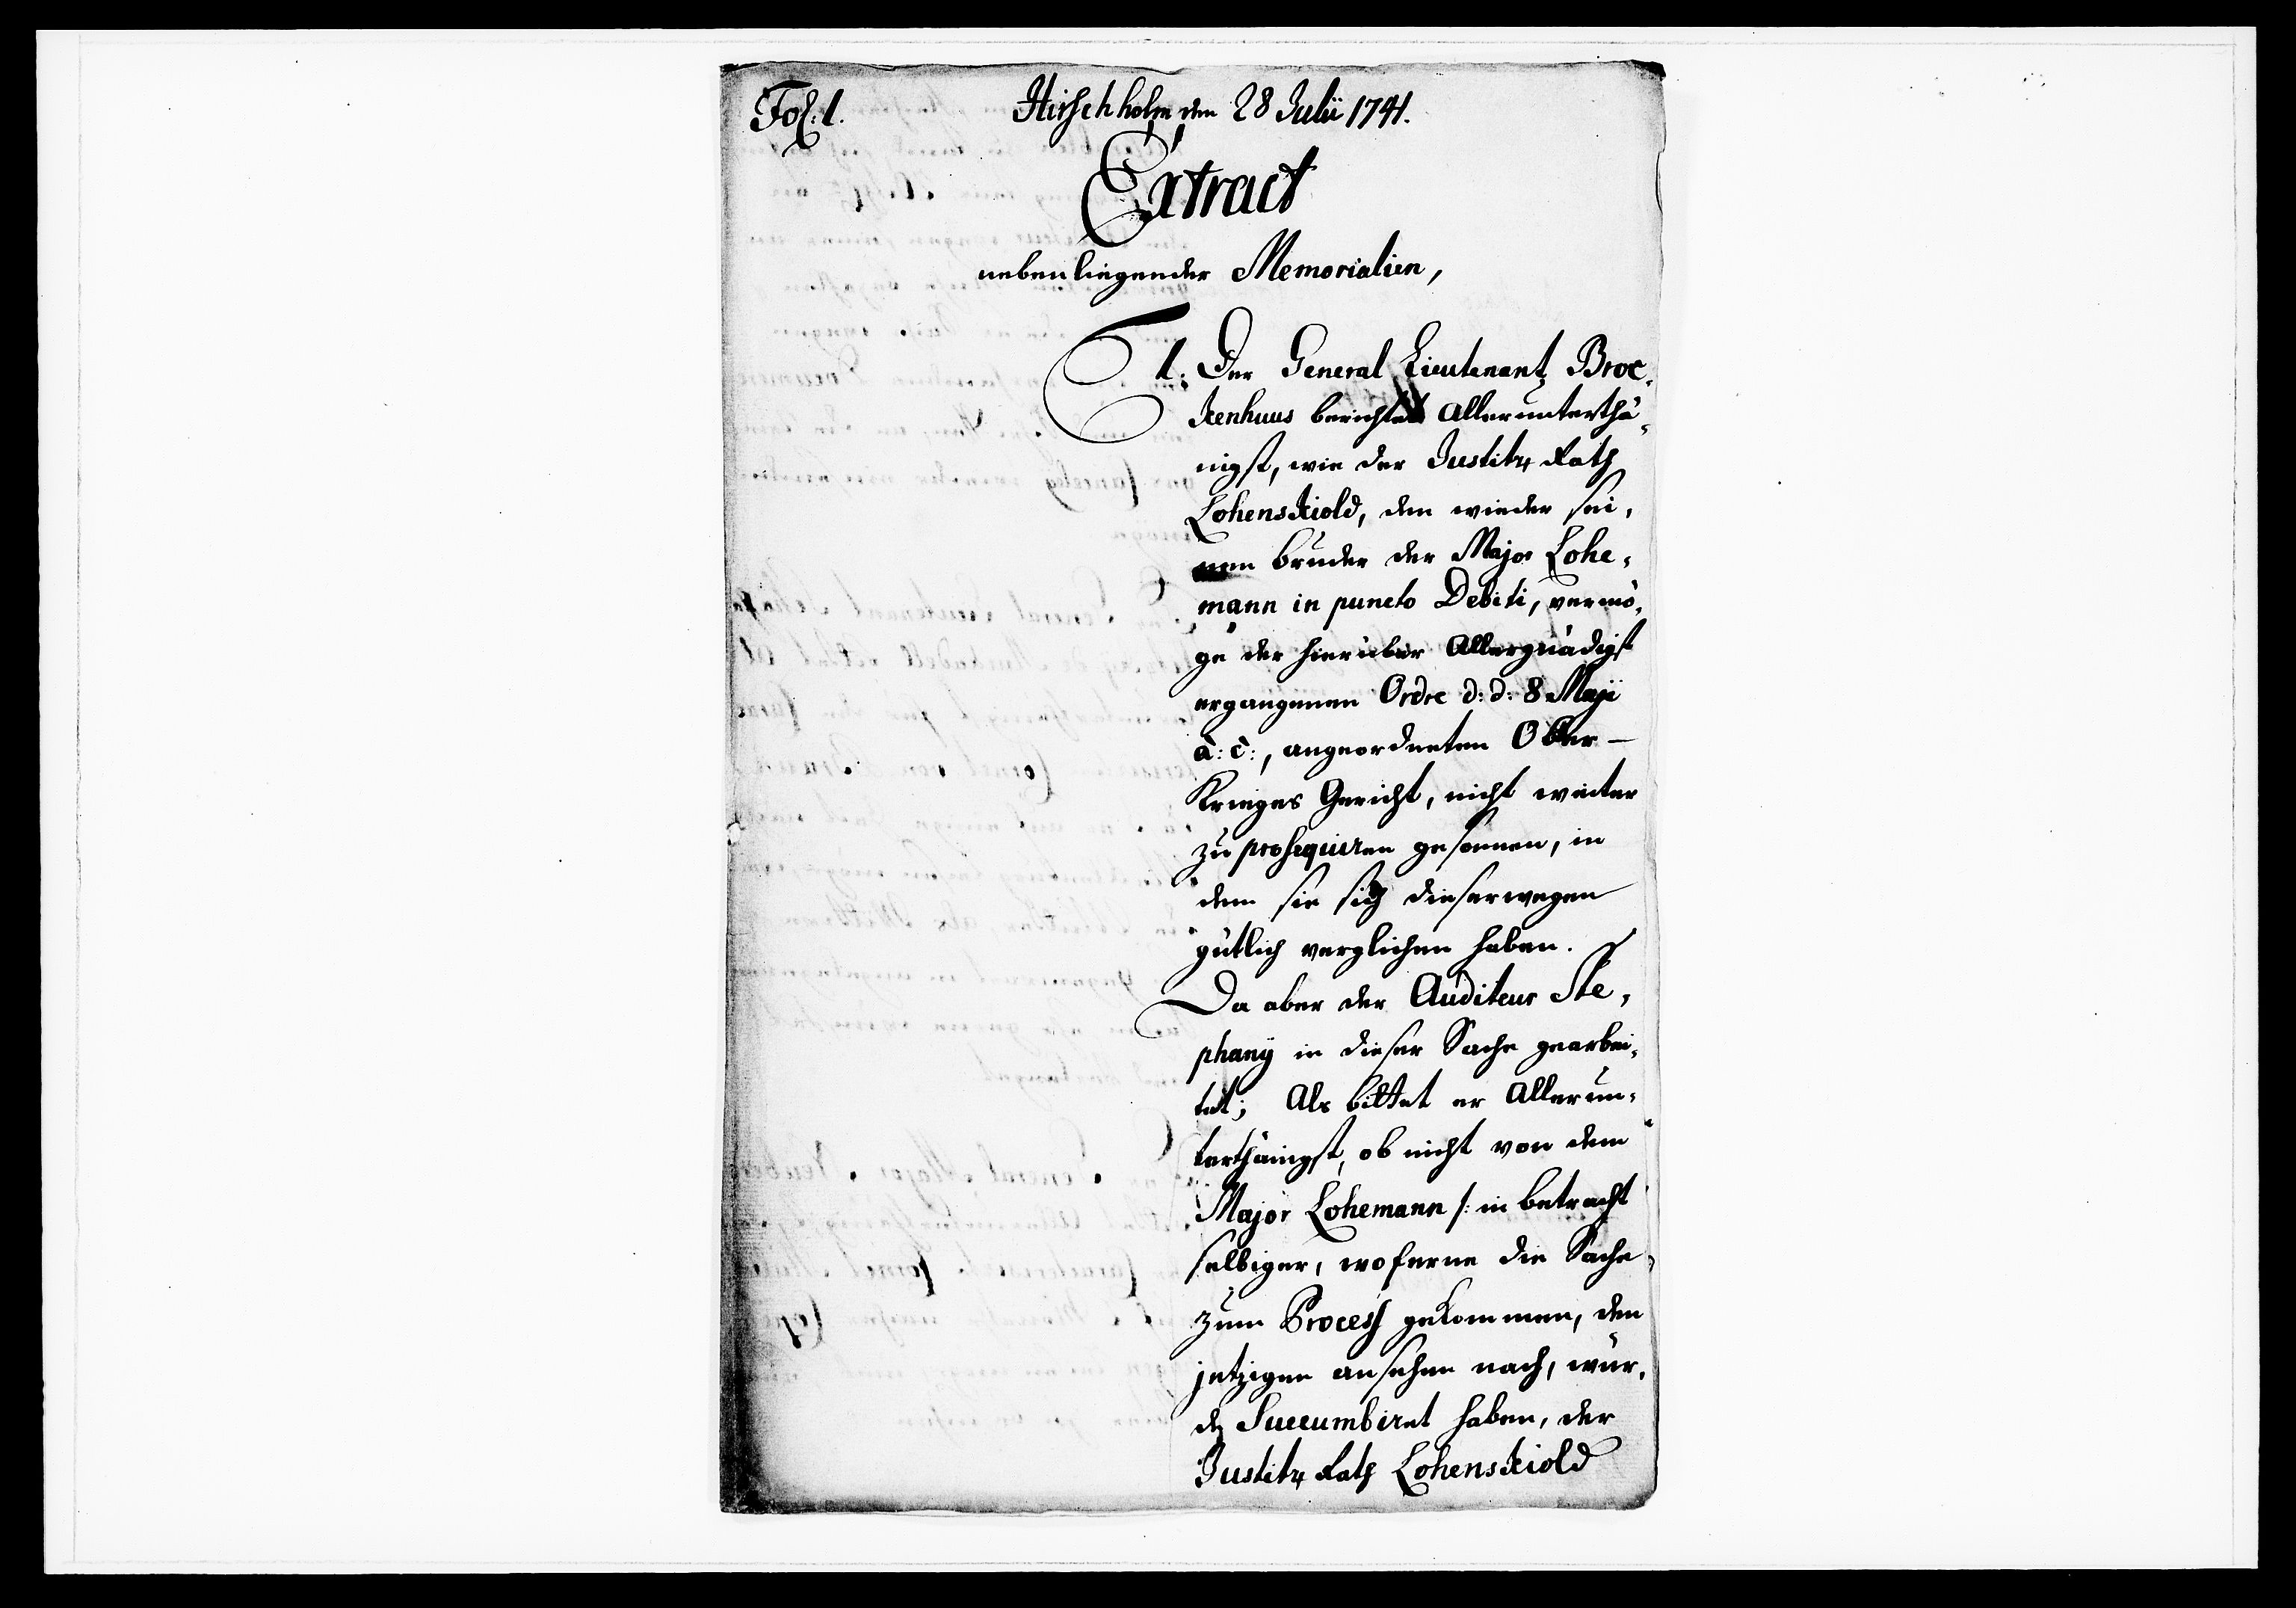 Fol: 1.
Hirschholm den 28 Julii 1741.
Extract
nebenliegender Memorialien,
1. Der General Lieutenant Broc-
kenhuus berichtet Allerunterthä-
nigst, wie der Justitz Rath
Lohenskiold, den wieder sei-
nen bruder der Major Lohe-
mann in puncto Debiti, vermö-
ge der hierüber Allergnädigst
ergangenen Ordre d: d: 8 Maji
a: c:, angeordneten Ober-
Krieges Gericht, nicht weiter
zu prosequiren gesonnen, in
dem sie sich dieserwegen
gütlich verglichen haben.
Da aber der Auditeur Ste-
phany in dieser Sache gearbei-
tet; Als bittet er Allerun-
terthänigst, ob nicht von dem
Major Lohemann /: in betracht
selbiger, woferne die Sache
zum Process gekommen, dem
jetzigen ansehen nach, wür-
de Succumbiret haben, der
Justitz Rath Lohenskiold